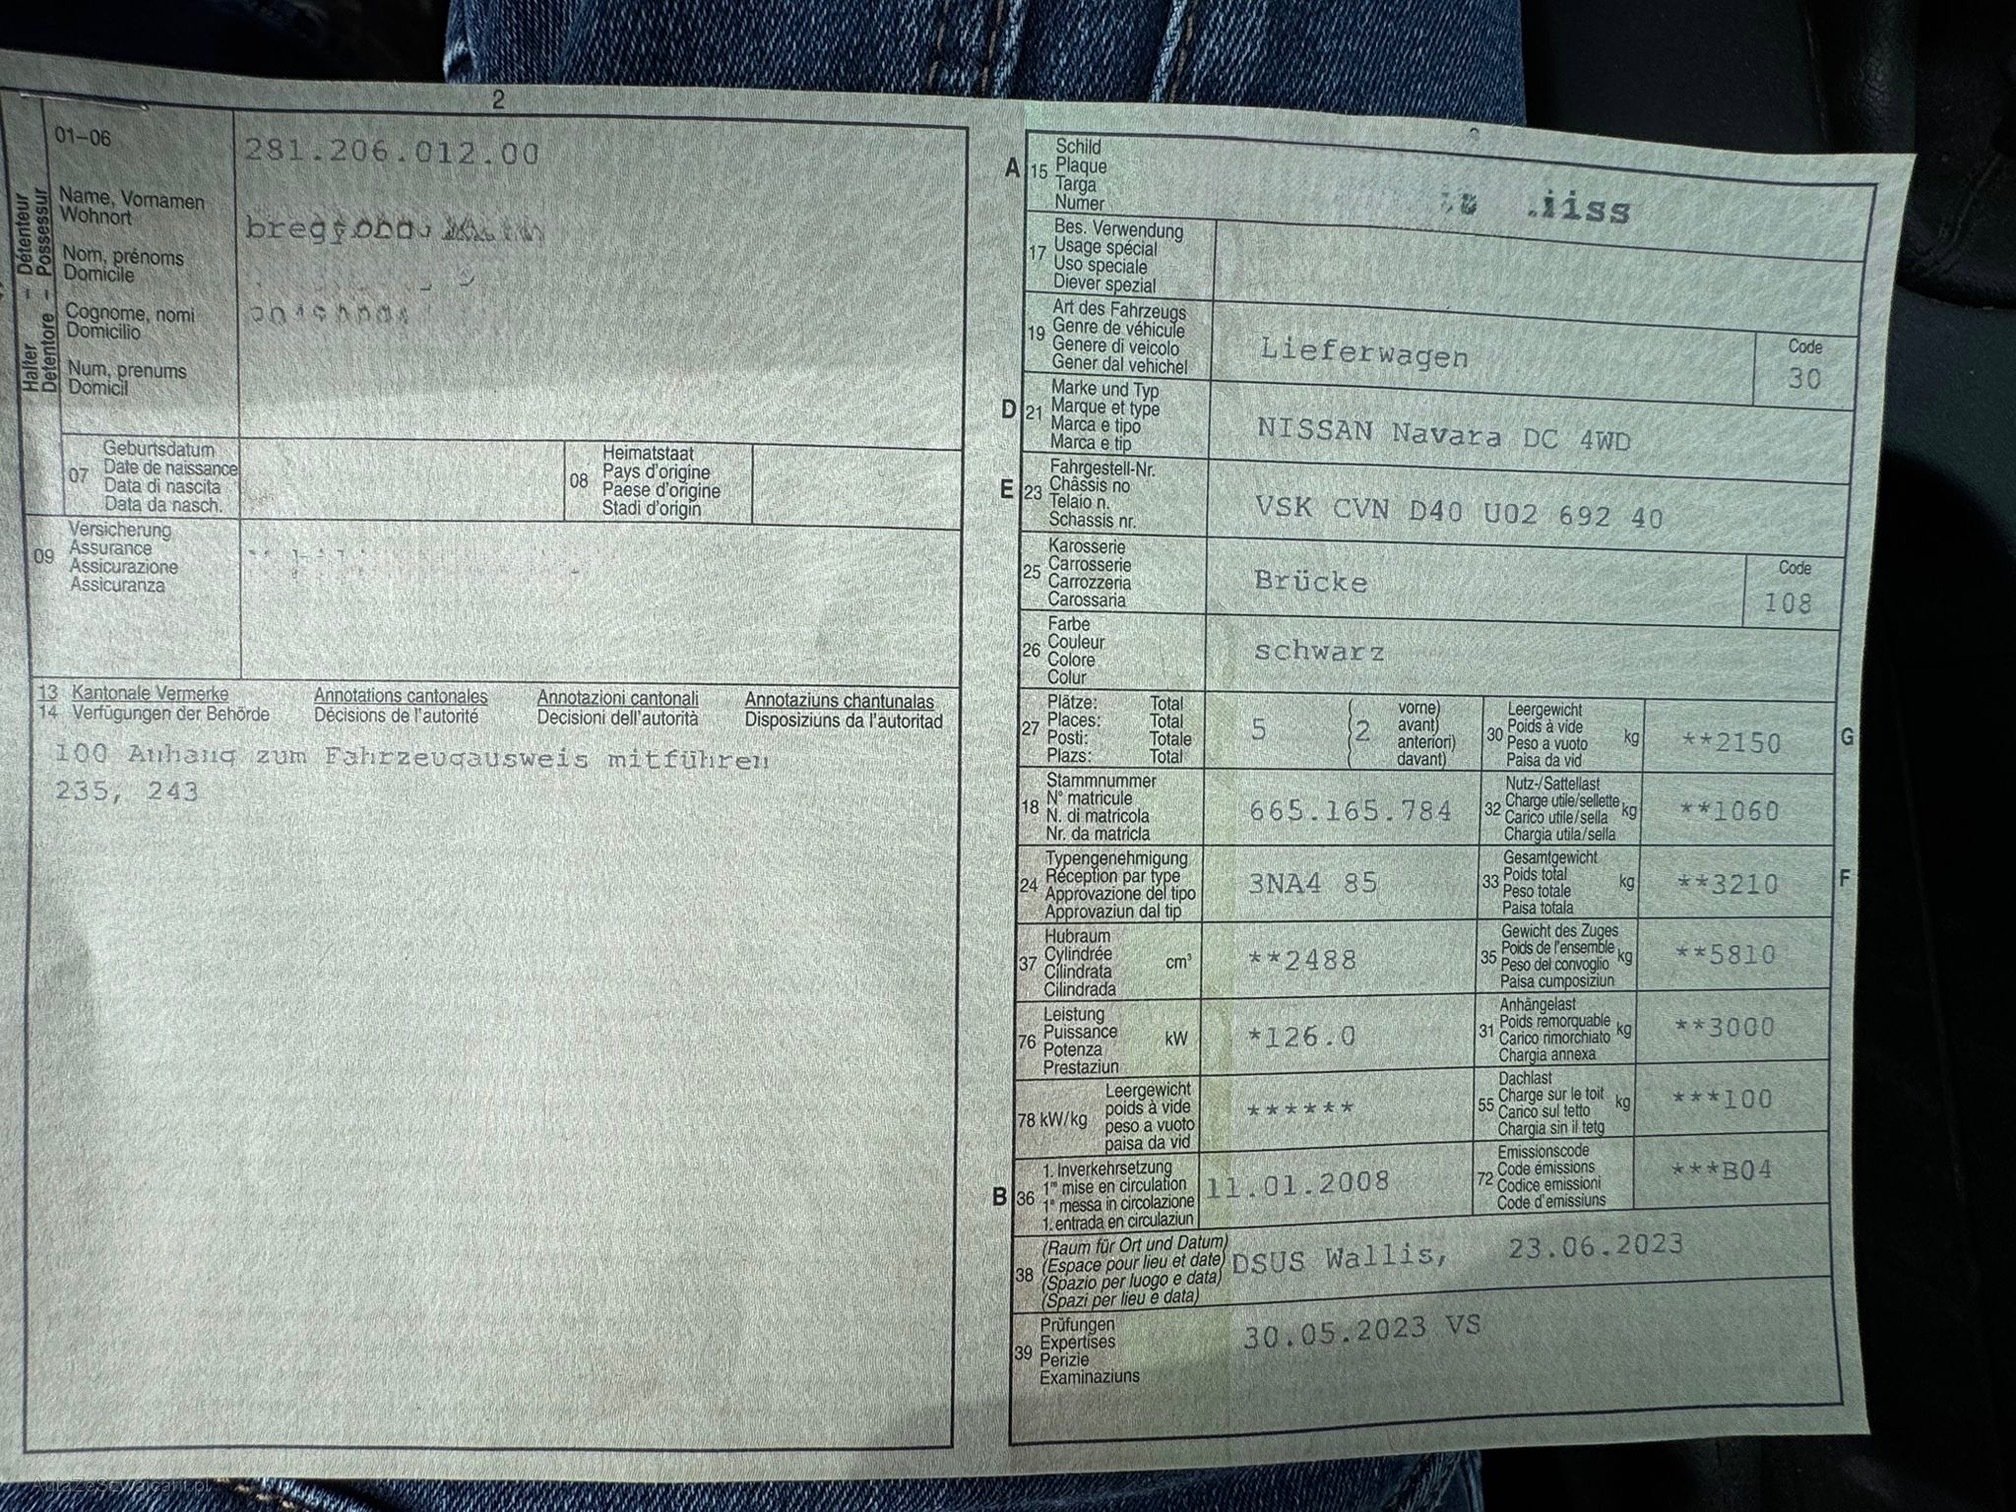 2
01–06
281.206.012.00
Halter – Détenteur
Detentore – Possessur
Name, Vornamen
Wohnort
Nom, prénoms
Domicile
Cognome, nomi
Domicilio
Num, prenums
Domicil
07
Geburtsdatum
Date de naissance
Data di nascita
Data da nasch.
08
Heimatstaat
Pays d'origine
Paese d'origine
Stadi d'origin
09
Versicherung
Assurance
Assicurazione
Assicuranza
13 Kantonale Vermerke Annotations cantonales Annotazioni cantonali Annotaziuns chantunalas
14 Verfügungen der Behörde Décisions de l'autorité Decisioni dell'autorità Disposiziuns da l'autoritad
100 Anhang zum Fahrzeugausweis mitführen
235, 243
A 15
Schild
Plaque
Targa
Numer
17
Bes. Verwendung
Usage spécial
Uso speciale
Diever spezial
19
Art des Fahrzeugs
Genre de véhicule
Genere di veicolo
Gener dal vehichel
Lieferwagen
Code
30
D 21
Marke und Typ
Marque et type
Marca e tipo
Marca e tip
NISSAN Navara DC 4WD
E 23
Fahrgestell-Nr.
Châssis no
Telaio n.
Schassis nr.
VSK CVN D40 U02 692 40
25
Karosserie
Carrosserie
Carrozzeria
Carossaria
Brücke
Code
108
26
Farbe
Couleur
Colore
Colur
schwarz
27
Plätze: Total
Places: Total
Posti: Totale
Plazs: Total
5
(2
vorne)
avant)
anteriori)
davant)
30
Leergewicht
Poids à vide
Peso a vuoto
Paisa da vid
kg
**2150
G
18
Stammnummer
N° matricule
N. di matricola
Nr. da matricla
665.165.784
32
Nutz-/Sattellast
Charge utile/sellette
Carico utile/sella
Chargia utila/sella
kg
**1060
24
Typengenehmigung
Réception par type
Approvazione del tipo
Approvaziun dal tip
3NA4 85
33
Gesamtgewicht
Poids total
Peso totale
Paisa totala
kg
**3210
F
37
Hubraum
Cylindrée
Cilindrata
Cilindrada
cm³
**2488
35
Gewicht des Zuges
Poids de l'ensemble
Peso del convoglio
Paisa cumposiziun
kg
**5810
76
Leistung
Puissance
Potenza
Prestaziun
kW
*126.0
31
Anhängelast
Poids remorquable
Carico rimorchiato
Chargia annexa
kg
**3000
78 kW/kg
Leergewicht
poids à vide
peso a vuoto
paisa da vid
******
55
Dachlast
Charge sur le toit
Carico sul tetto
Chargia sin il tetg
kg
***100
B 36
1. Inverkehrsetzung
1re mise en circulation
1a messa in circolazione
1. entrada en circulaziun
11.01.2008
72
Emissionscode
Code émissions
Codice emissioni
Code d'emissiuns
***B04
38
(Raum für Ort und Datum)
(Espace pour lieu et date)
(Spazio per luogo e data)
(Spazi per lieu e data)
DSUS Wallis, 23.06.2023
39
Prüfungen
Expertises
Perizie
Examinaziuns
30.05.2023 VS
AutaZeSzwajcarii.pl